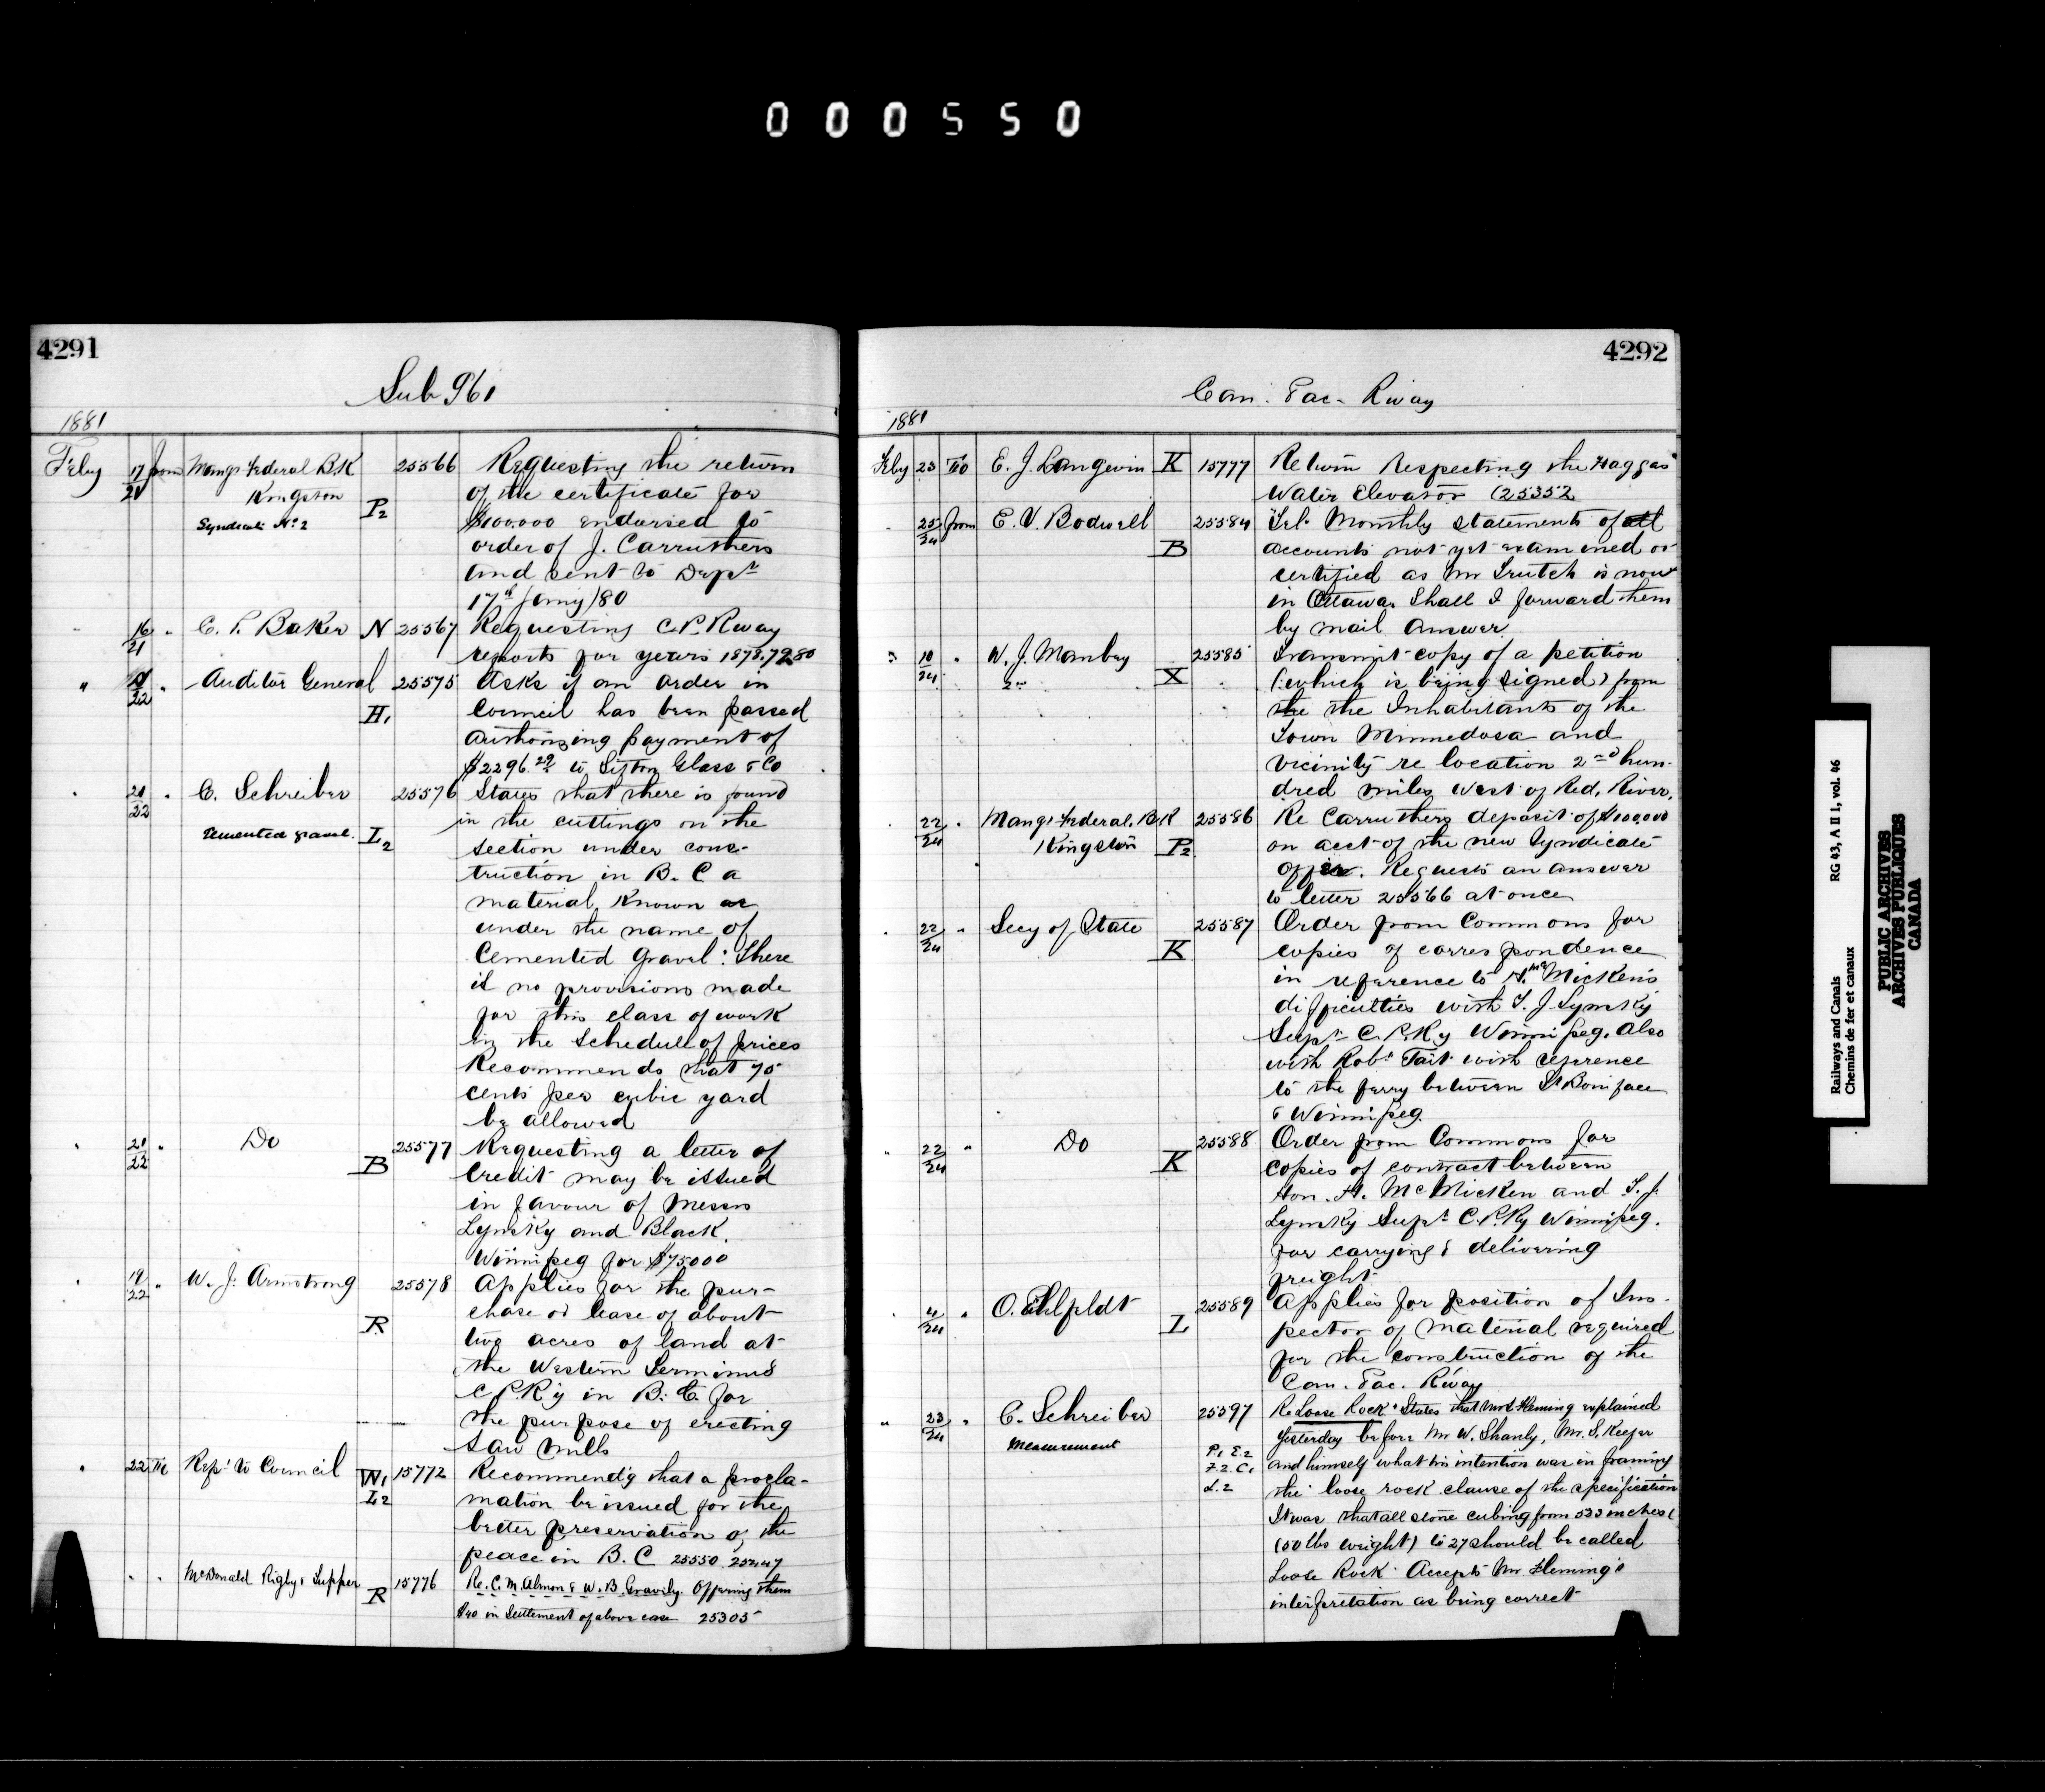 000550
4291
Sub 961
1881
Feby 17/21 from Mangr Federal B.K 25566 Requesting the return
Kingston P2 of the certificate for
Syndicate No. 2 $100.000 endorsed to
order of J. Carruthers
and sent to Dept
17th Jany/80
16/21 " C. P. Baker N 25567 Requesting C.P. Rway
reports for years 1878.79.80
" /22 " Auditor General 25575 Asks if an order in
H1 Council has been passed
authorizing payment of
$2296.29 to Sifton Glass & Co
" 21/22 " C. Schreiber 25576 States that there is found
in the cuttings on the
Cemented gravel. L2 section under cons-
truction in B. C a
material known as
under the name of
Cemented Gravel: There
is no provisions made
for this class of work
in the Schedule of prices
Recommends that 75
cents per cubic yard
be allowed
" 21/22 " Do 25577 Requesting a letter of
B Credit may be issued
in favour of Messrs
Lynsky and Black.
Winnipeg for $75000
" 19/22 " W. J. Armstrong 25578 Applies for the pur-
R chase or lease of about
two acres of land at
the Western Terminus
C P. R'y in B. C. for
the purpose of erecting
Saw Mills
" 22 To Rept to Council W1 15772 Recommend'g that a procla-
L2 mation be issued for the
better preservation of the
peace in B. C 25550 25447
" " McDonald Rigby & Tupper R 15776 Re. C. M. Almon & W. B. Gravily. Offering them
$40 in Settlement of above case 25305
4292
Can. Pac. Rway
1881
Feby 23 To E. J. Langevin K 15777 Return Respecting the Haggas
Water Elevator (25352
" 25/24 from E. V. Bodwell 25584 Tel. Monthly statements of all
B accounts not yet examined or
certified as Mr Trutch is now
in Ottawa. Shall I forward them
by mail Answer
" 10/24 " W. J. Manbey 25585 Transmit copy of a petition
X (which is being signed) from
the the Inhabitants of the
Town Minnedosa and
vicinity re location 2nd hun-
dred miles west of Red. River.
" 22/24 " Mangr Federal. B.K 25586 Re Carruthers deposit of $100,000
Kingston P2 on acct of the new Syndicate
offer. Requests an answer
to letter 25566 at once
" 22/24 " Secy of State 25587 Order from Commons for
K copies of correspondence
in reference to H. McMicken's
difficulties with T. J. Lynsky
Supt C. P. Ry Winnipeg. Also
with Robt Tait with reference
to the ferry between St Boniface
& Winnipeg.
" 22/24 " Do 25588 Order from Commons for
K copies of contract between
Hon. A. McMicken and T. J.
Lynsky Supt C. P. Ry Winnipeg.
for carrying & delivering
freight
" 4/24 " O. Fhlfeldt 25589 Applies for position of Ins-
L pector of material required
for the construction of the
Can. Pac. Rway
" 23/24 " C. Schreiber 25597 Re Loose Rock. States that Mr S. Fleming explained
Measurement P1 E.2 Yesterday before Mr W. Shanly, Mr. S. Keefer
F.2. C1 and himself what his intention was in framing
L.2 the loose rock clause of the specification
It was that all stone cubing from 533 inches (
(50 lbs weight) to 27 should be called
Loose Rock. Accepts Mr Fleming's
interpretation as being correct
Railways and Canals RG 43, A II 1, vol. 46
Chemins de fer et canaux
PUBLIC ARCHIVES
ARCHIVES PUBLIQUES
CANADA